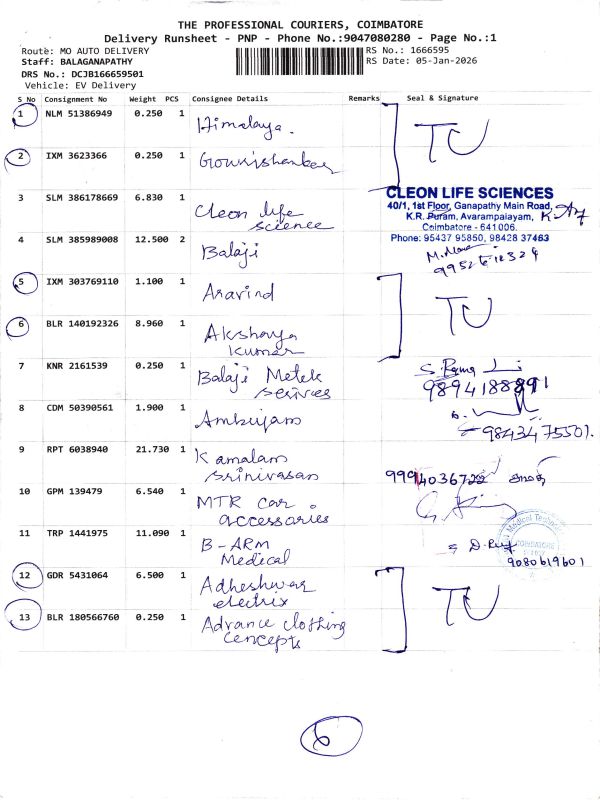 THE PROFESSIONAL COURIERS, COIMBATORE
Delivery Runsheet - PNP - Phone No.:9047080280 - Page No.:1
Route: MO AUTO DELIVERY
RS No.: 1666595
Staff: BALAGANAPATHY
RS Date: 05-Jan-2026
DRS No.: DCJB166659501
Vehicle: EV Delivery
S No Consignment No Weight PCS Consignee Details Remarks Seal & Signature
1 NLM 51386949 0.250 1 Himalaya. TU
2 IXM 3623366 0.250 1 Gowrishankar
3 SLM 386178669 6.830 1 Cleon life
science
CLEON LIFE SCIENCES
40/1, 1st Floor, Ganapathy Main Road,
K.R. Puram, Avarampalayam,
Coimbatore - 641006.
Phone: 95437 95850, 98428 37463
4 SLM 385989008 12.500 2 Balaji
5 IXM 303769110 1.100 1 Aravind TU
6 BLR 140192326 8.960 1 Akshaya
Kumar
7 KNR 2161539 0.250 1 Balaji Metek
Serivces
8 CDM 50390561 1.900 1 Ambujam
98434 75501.
9 RPT 6038940 21.730 1 Kamalam
Srinivasan
10 GPM 139479 6.540 1 MTR car
accessories
11 TRP 1441975 11.090 1 B-ARM
Medical
COIMBATORE
9080619601
12 GDR 5431064 6.500 1 Adheshwar
electrix
TU
13 BLR 180566760 0.250 1 Advance clothing
concepts
6